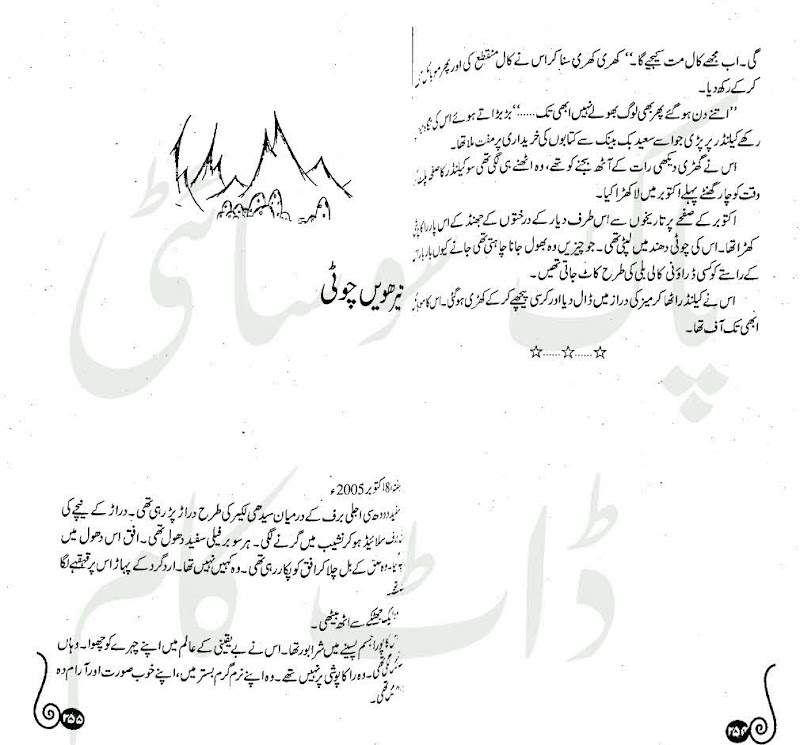 گی۔ اب مجھے کال مت کیجیے گا۔“ کھری کھری سنا کر اس نے کال منقطع کی اور پھر موبائل
کر کے رکھ دیا۔
”اتنے دن ہو گئے پھر بھی لوگ بھولے نہیں ابھی تک......“ بڑبڑاتے ہوئے اس کی
رکھے کیلنڈر پر پڑی جو اسے سعید بک بینک سے کتابوں کی خریداری پر مفت ملا تھا۔
اس نے گھڑی دیکھی رات کے آٹھ بجنے کو تھے، وہ اٹھنے ہی لگی تھی سو کیلنڈر کا صفحہ
وقت کو چار گھنٹے پہلے اکتوبر میں لا کھڑا کیا۔
اکتوبر کے صفحے پر تاریخوں سے اس طرف دیار کے درختوں کے جھنڈ کے اس پار
کھڑا تھا۔ اس کی چوٹی دھند میں لپٹی تھی۔ جو چیزیں وہ بھول جانا چاہتی تھی جانے کیوں بار بار
کے راستے کو کسی ڈراؤنی کالی بلی کی طرح کاٹ جاتی تھیں۔
اس نے کیلنڈر اٹھا کر میز کی دراز میں ڈال دیا اور کرسی پیچھے کر کے کھڑی ہو گئی۔ اس کا
ابھی تک آف تھا۔
☆......☆......☆
۲۵۴
تیرھویں چوٹی
ہفتہ 8 اکتوبر 2005ء
سفید دودھ سی اجلی برف کے درمیان سیدھی لکیر کی طرح دراڑ پڑ رہی تھی۔ دراڑ کے نیچے کی
برف سلائیڈ ہو کر نشیب میں گرنے لگی۔ ہر سو برفیلی سفید دھول تھی۔ افق اس دھول میں
وہ حلق کے بل چلا کر افق کو پکار رہی تھی۔ وہ کہیں نہیں تھا۔ اردگرد کے پہاڑ اس پر قہقہے لگا
جھٹکے سے اٹھ بیٹھی۔
اس کا پورا جسم پسینے میں شرابور تھا۔ اس نے بے یقینی کے عالم میں اپنے چہرے کو چھوا۔ وہاں
وہ راکا پوشی پر نہیں تھے۔ وہ اپنے نرم گرم بستر میں، اپنے خوب صورت اور آرام دہ
میں تھی۔
۲۵۵
پاک سوسائٹی
ڈاٹ کام